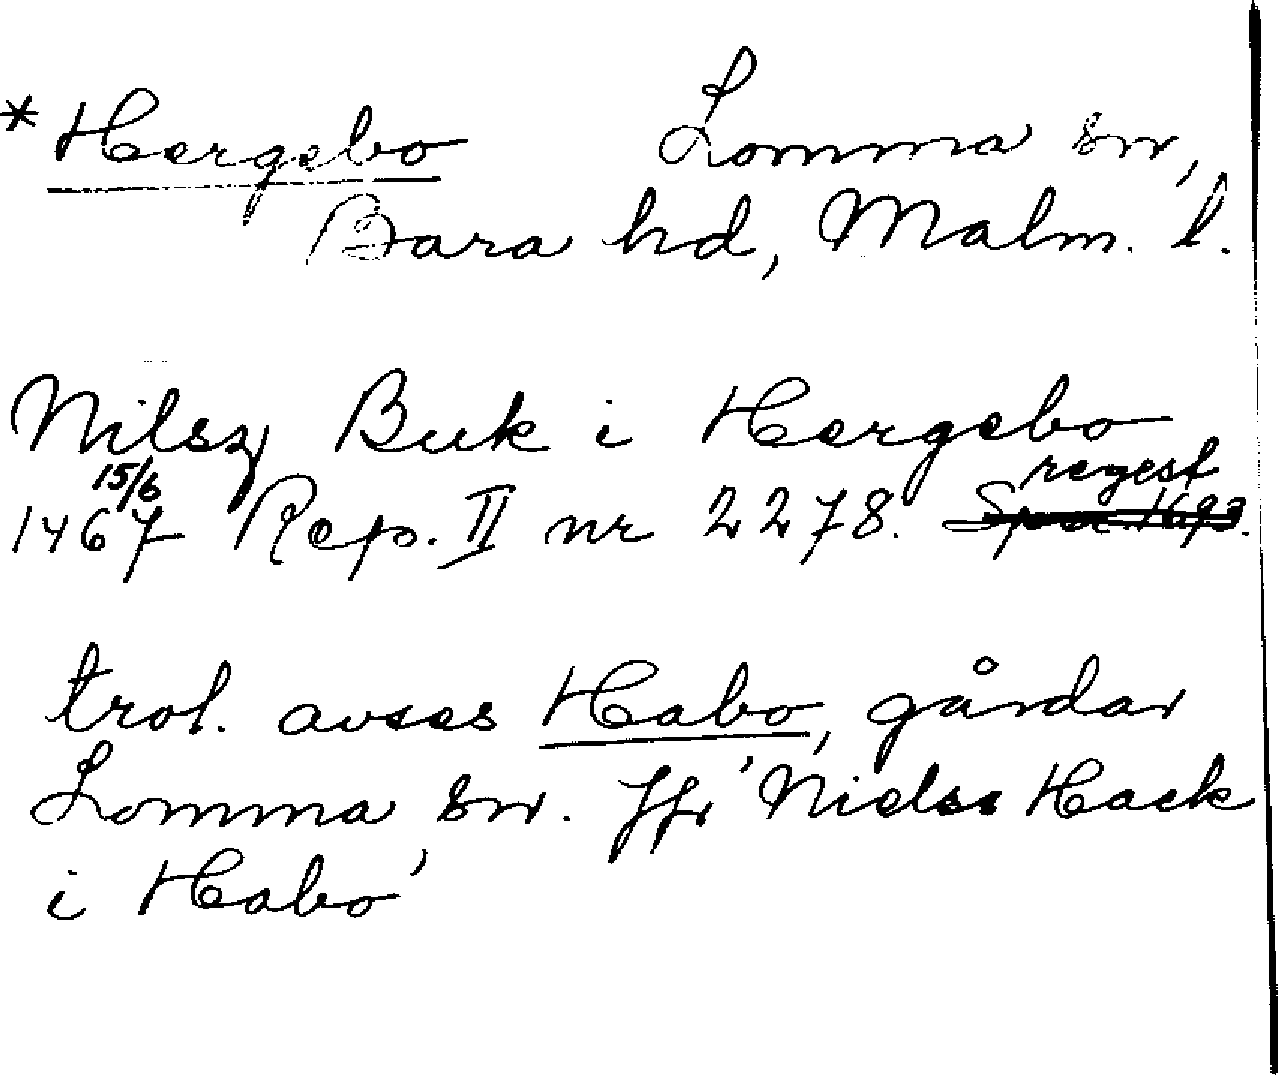 * Hergebo Lomma sn,
Bara hd, Malm. l.
Nilsz Buk i Hergebo
15/6 1467 Rep. II nr 2278. regest
trol. avses Habo, gårdar
Lomma sn. Jfr 'Nielss Hack
i Habo'